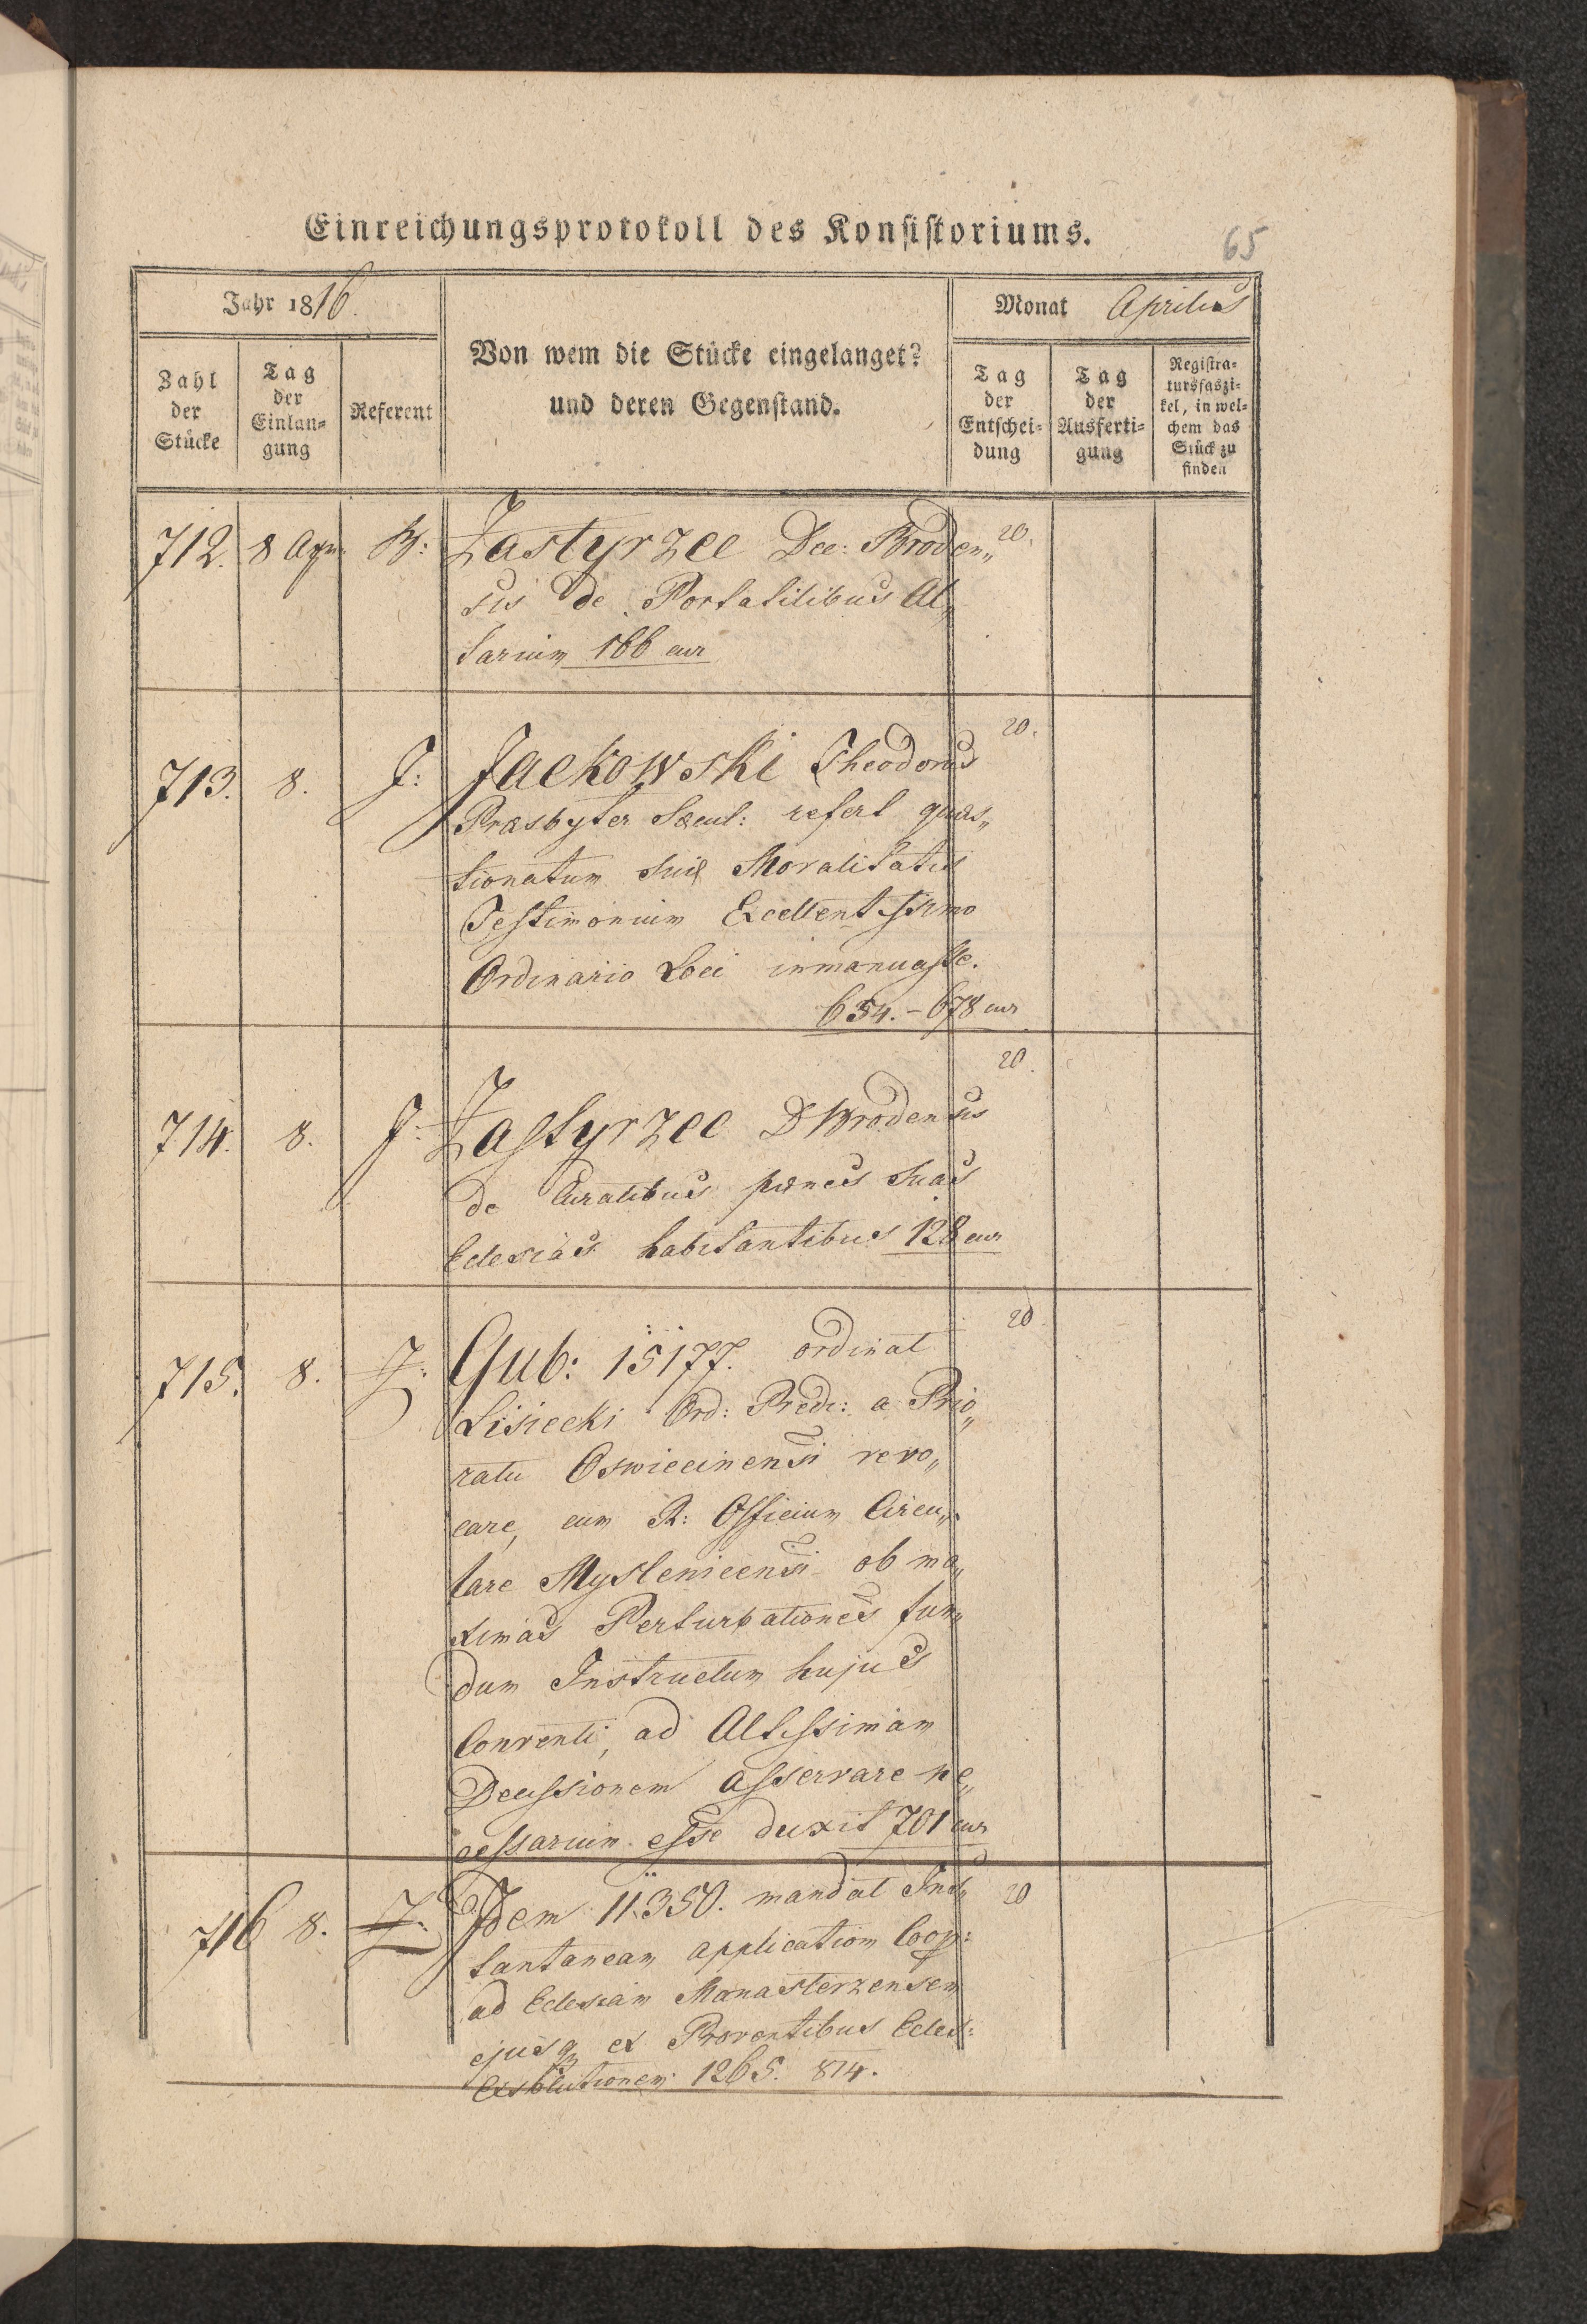 Einreichungsprotokoll des Konsistoriums.
65
Jahr 1816.
Monat Aprilis
Zahl der Stücke
Tag der Einlan=gung
Referent
Von wem die Stücke eingelanget?
und deren Gegenstand.
Tag der Entschei=dung
Tag der Ausferti=gung
Registra=tursfaszi=kel, in wel=chem das Stück zu finden
712. 8 Apr. Zastyrzec Dec: Broden„ 20.
sis de Portatilibus Al„
tarium 166 cur
713. 8. J: Jackowski Theodorus 20.
Præsbyter Sæcul: refert quæs„
tionatum suæ Moralitatis
Testimonium Excellentissimo
Ordinario Loci inmanuasse.
654. – 678 cur
714. 8. J: Zastyrzec D Brodensis 20.
de Curatibus pœnes suas
Eclesias habitantibus 128 cur
715. 8. Gub: 15177. ordinat 20.
Lisiecki Ord: Predi: a Prio„
ratu Oswiecinensi revo„
care, cum R: Officium Circu„
lare Myslenicensi ob ma„
ximas Perturbationes fun„
dum Instructum hujus
Conventi, ad Altissimam
Decissionem asservare ne„
cessarium esse duxit 701 cur
716 8. Idem 11.350. mandat Ins„ 20
tantaneam application Coop:
ad Eclesiam Monasterzensem
ejusq ex Proventibus Ecles:
Exsolutionem 1265. 814.